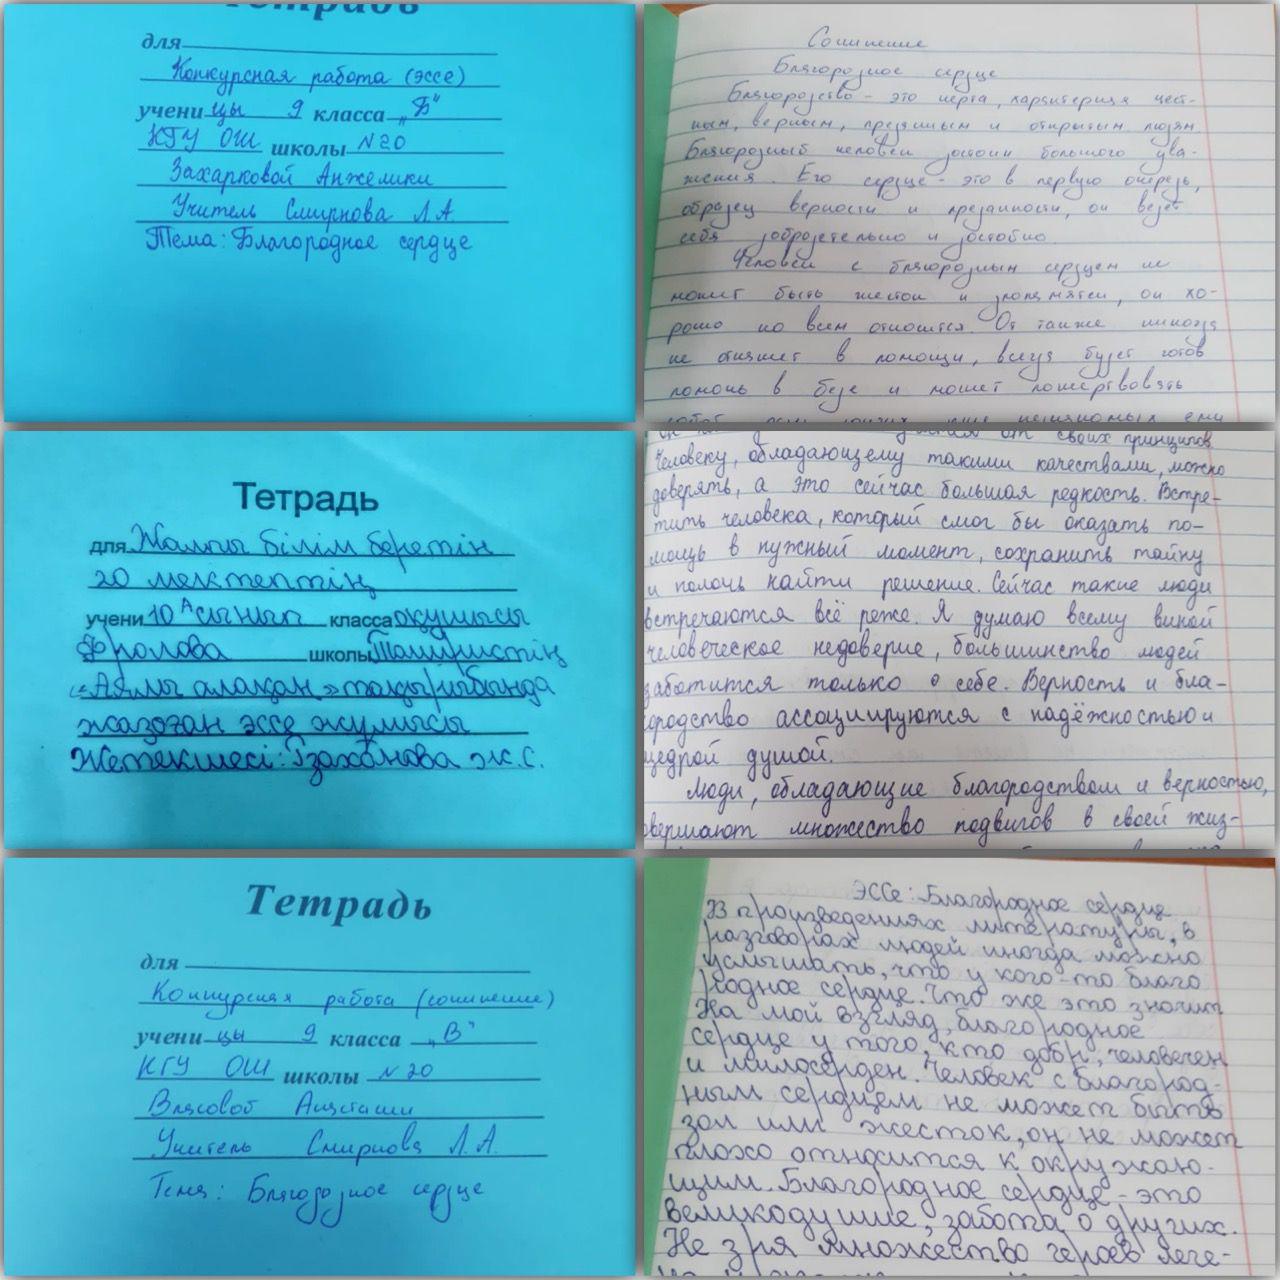 Тетрадь
для
Конкурсная работа (эссе)
учени цы 9 класса „Б"
КГУ ОШ школы №20
Захарковой Анжелики
Учитель Смирнова Л.А
Тема: Благородное сердце
Сочинение
Благородное сердце
Благородство - это черта, характерная чест-
ным, верным, преданным и открытым людям.
Благородный человек достоин большого ува-
жения. Его сердце - это в первую очередь,
образец верности и преданности, он ведет
себя добродетельно и достойно.
Человек с благородным сердцем не
может быть жесток и злопамятен, он хо-
рошо ко всем относится. От также никогда
не откажет в помощи, всегда будет готов
помочь в беде и может пожертвовать
собой
от своих принципов.
Человеку, обладающему такими качествами, можно
доверять, а это сейчас большая редкость. Встре-
тить человека, который смог бы оказать по-
мощь в нужный момент, сохранить тайну
и помочь найти решение. Сейчас такие люди
встречаются всё реже. Я думаю всему виной
человеческое недоверие, большинство людей
заботится только о себе. Верность и бла-
городство ассоциируются с надёжностью и
щедрой душой.
Люди, обладающие благородством и верностью,
совершают множество подвигов в своей жиз-
Тетрадь
для Жалпы білім беретін
20 мектептің
учени 10 А сынып класса оқушысы
Фролова школы
«Аялы алақан» тақырыбында
жазған эссе жұмысы
Жетекшесі: Ж.С.
Тетрадь
для
Конкурсная работа (сочинение)
учени цы 9 класса „В"
КГУ ОШ школы №20
Власовой Анастасии
Учитель Смирнова Л.А.
Тема: Благородное сердце
ЭССе: Благородное сердце
В произведениях литературы, в
разговорах людей иногда можно
услышать, что у кого-то благо
родное сердце. Что же это значит
На мой взгляд, благородное
сердце у того, кто добр, человечен
и милосерден. Человек с благород-
ным сердцем не может быть
зол или жесток, он не может
плохо относится к окружаю-
щим. Благородное сердце - это
великодушие, забота о других.
Не зря множество героев леге-